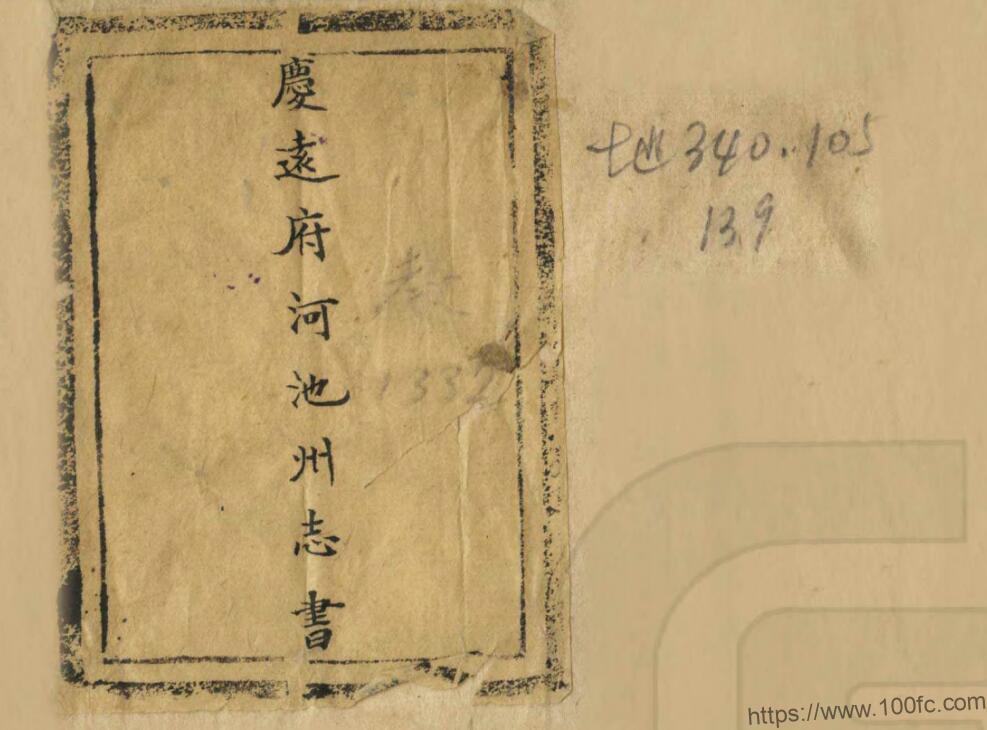 慶遠府河池州志書
地340.105
139
1332
https://www.100fc.com